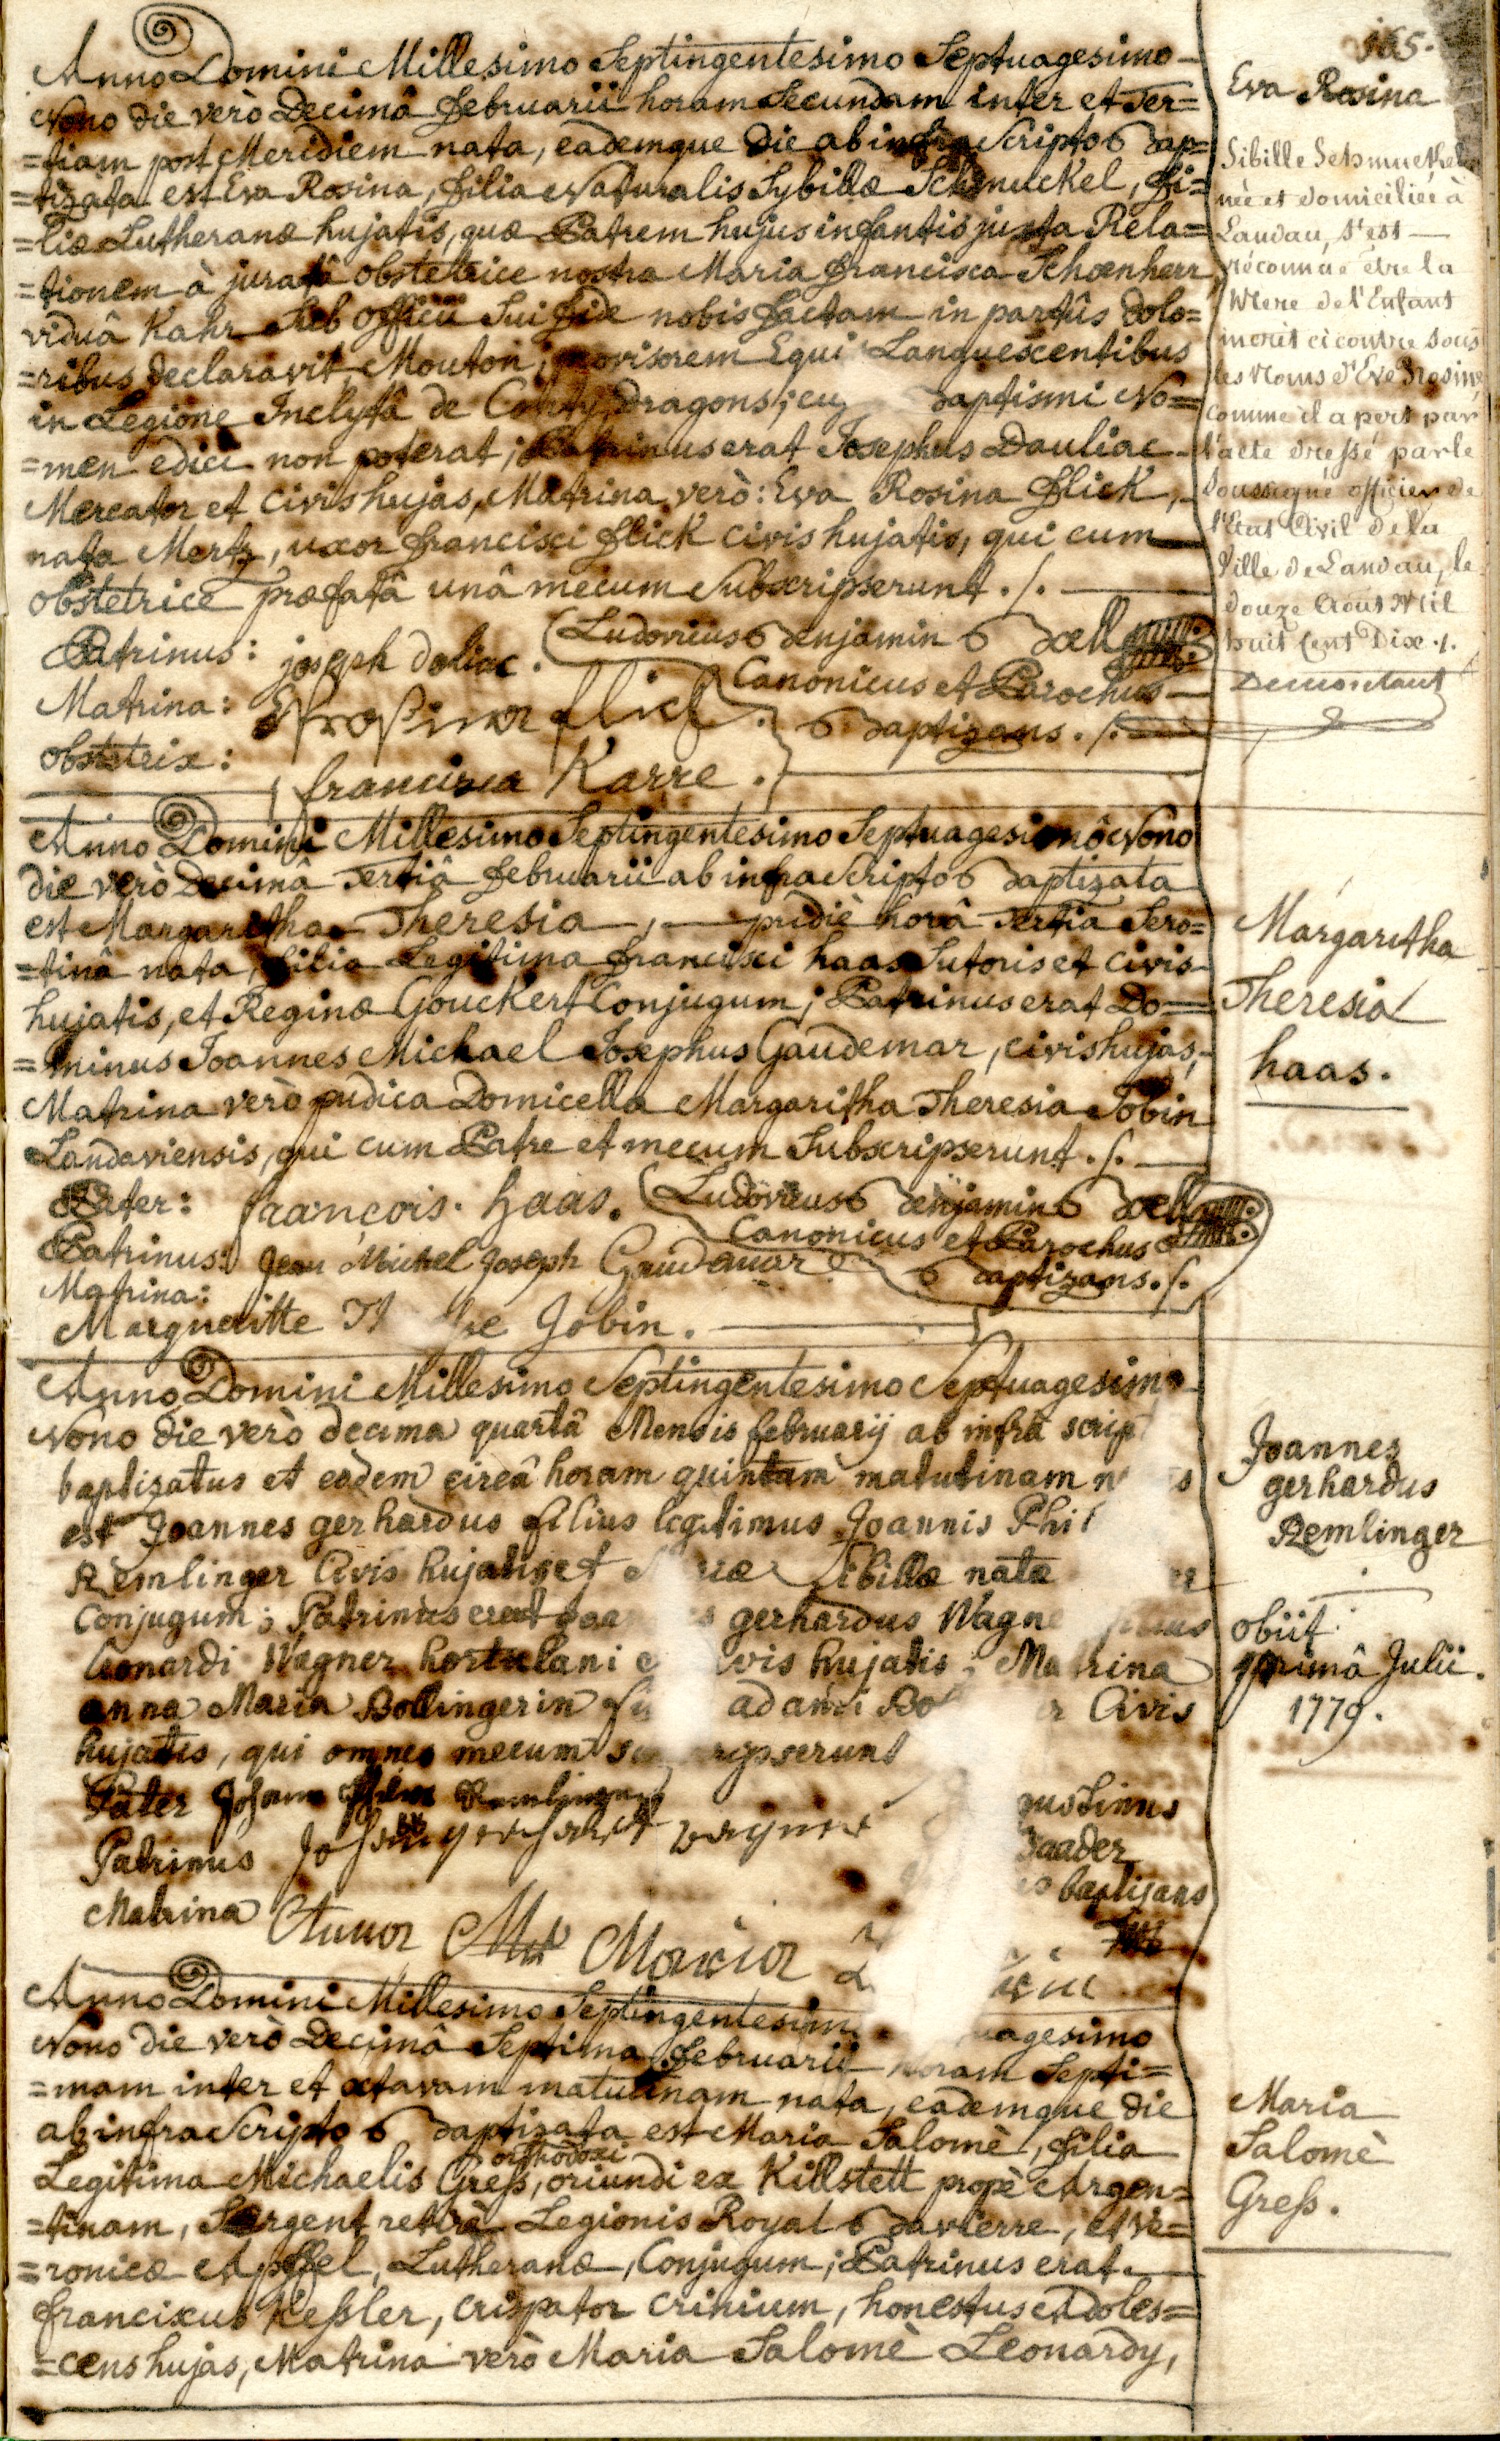 165.
Anno Domini Millesimo Septingentesimo Septuagesimo
Nono die verò Decimâ februarii horam Secundam inter et Ter=
=tiam post Meridiem nata, eademque die ab infra Scripto Bap=
=tizata est Eva Rosina, filia Naturalis Sybillæ Schmuckel, fi=
=liæ Lutheranæ hujatis, quæ Patrem hujus infantis juxta Rela=
=tionem à juratâ obstetrice nostra Maria francisca Schoenherr
viduâ Kahr Sub officii Sui fide nobis factam in partûs dolo=
=ribus declaravit Mouton, provisorem Equis Languescentibus
in Legione Inclytâ de Dragons; Baptismi No=
=men edici non poterat; Patrinus erat Josephus Dauliac
Mercator et civis hujas, Matrina verò: Eva Rosina flick,
nata Mertz, uxor francisci flick civis hujatis, qui cum
obstetrice præfatâ unâ mecum Subscripserunt ./.
Patrinus: joseph doliac. Ludovicus Benjamin Boell
Canonicus et Parochus
Matrina: Efrosina flick
Baptizans ./.
obstetrix: francisca Karre.
Eva Rosina
Sibille Schmuckel
née et domiciliée à
Landau, s'est
réconnue être la
Mere de l'Enfant
inscrit ci contre sous
les Noms d'Eve Rosine
comme il a pert par
l'acte dressé par le
Soussigné officier de
l'Etat Civil de la
Ville de Landau, le
douze Aout Mil
huit Cent Dix ./.
Demontaut
Anno Domini Millesimo Septingentesimo Septuagesimô Nono
die verò Decimâ Tertiâ februarii ab infra Scripto Baptizata
est Margaritha Theresia, pridiè horâ Tertia Sero=
=tinâ nata, filia Legitima francisci haas Sutoris et civis
hujatis, et Reginæ Gouckert Conjugum; Patrinus erat Do=
=minus Joannes Michael Josephus Gaudemar, civis hujas,
Matrina verò pudica Domicella Margaritha Theresia Jobin
Landaviensis, qui cum Patre et mecum Subscripserunt ./.
Pater: francois. haas. Ludovicus Benjamin Boell
Canonicus et Parochus
Patrinus: Jean Michel Joseph Gaudemar
Baptizans ./.
Matrina:
Margueritte Jobin.
Margaritha
Theresia
haas.
Anno Domini Millesimo Septingentesimo Septuagesimo
Nono die verò decima quartâ Mensis februarij ab infra script
baptizatus et eodem circâ horam quintam matutinam
est Joannes gerhardus filius legitimus Joannis Phil
Remlinger Civis hujatis et Sibillæ natæ
Conjugum; Patrinus erat gerhardus Wagner
Leonardi Wagner hortulani hujatis; Matrina
anna Maria Bollingerin adami Civis
hujatis, qui omnes mecum
Pater Johann Remlinger
Patrinus Johann gerhardt wagner
Baader
baptizans
Matrina Anna Maria
Joannes
gerhardus
Remlinger
obiit
primâ Julii.
1779.
Anno Domini Millesimo Septingentesim
Nono die verò Decimâ Septima februarii horam Septi=
=mam inter et octavam matutinam nata, eademque die
ab infra Scripto Baptizata est Maria Salomè, filia
orthodoxi
Legitima Michaelis Greß, oriundi ex Killstett propè Argen=
=tinam, Sergent retiré Legionis Royal Bavierre, et Ve=
=ronicæ Apffel, Lutheranæ, Conjugum; Patrinus erat
franciscus Keßler, crispator crinium, honestus Adoles=
=cens hujas, Matrina verò Maria Salomè Leonardy,
Maria
Salomè
Greß.